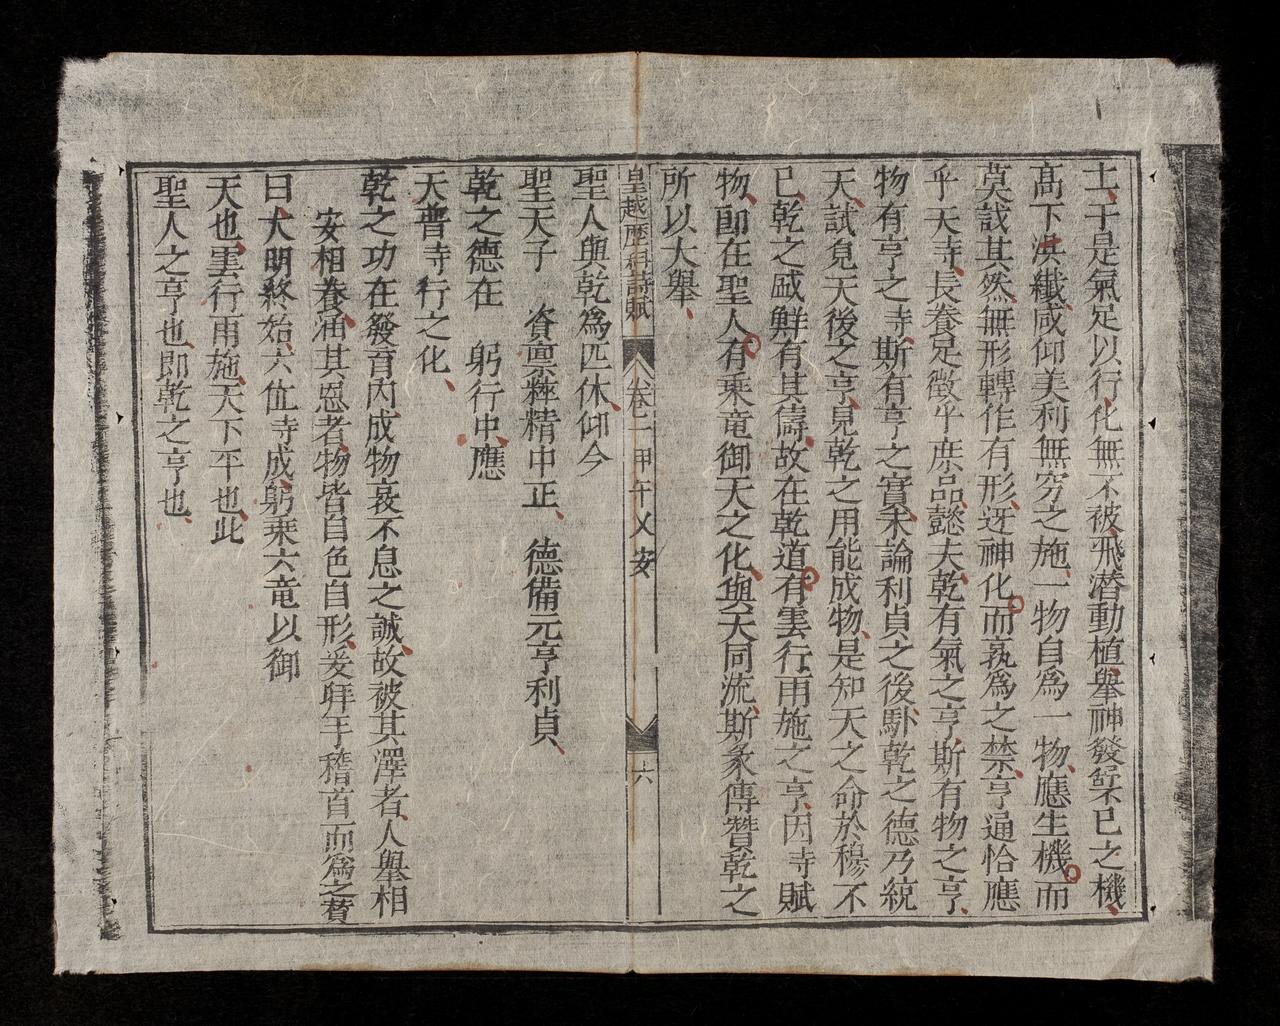 士、于是氣足以行、化無不被、飛潜動植、舉神發榮不已之機、
髙下洪纎、咸仰美利無穷之施、一物自爲一物、應生機而
莫㦯其然、無形轉作有形、迓神化而孰爲之禁、亨通恰應
乎天寺、長養足徵乎庶品、懿夫乾有氣之亨、斯有物之亨、
物有亨之寺、斯有亨之實、未論利貞之後、卧乾之德乃統
天、試見天後之亨、見乾之用能成物、是知天之命於穆不
已、乾之盛鮮有其儔、故在乾道有雲行雨施之亨、因寺賦
物、即在聖人有乘竜御天之化、與天同流、斯彖傳贊乾之
所以大舉、
皇越歷科詩賦 卷二 甲午乂安 六
聖人與乾爲匹休、仰今
聖天子 資禀粹精中正、德備元亨利貞、
乾之德在 躬行中、應
天普寺行之化、
乾之功在發育内、成物哀不息之誠、故被其澤者、人舉相
安相養、涵其恩者、物皆自色自形、爰拜手稽首而爲之贊
曰、大明終始、六位寺成、躬乘六竜以御
天也、雲行雨施、天下平也、此
聖人之亨也、即乾之亨也、